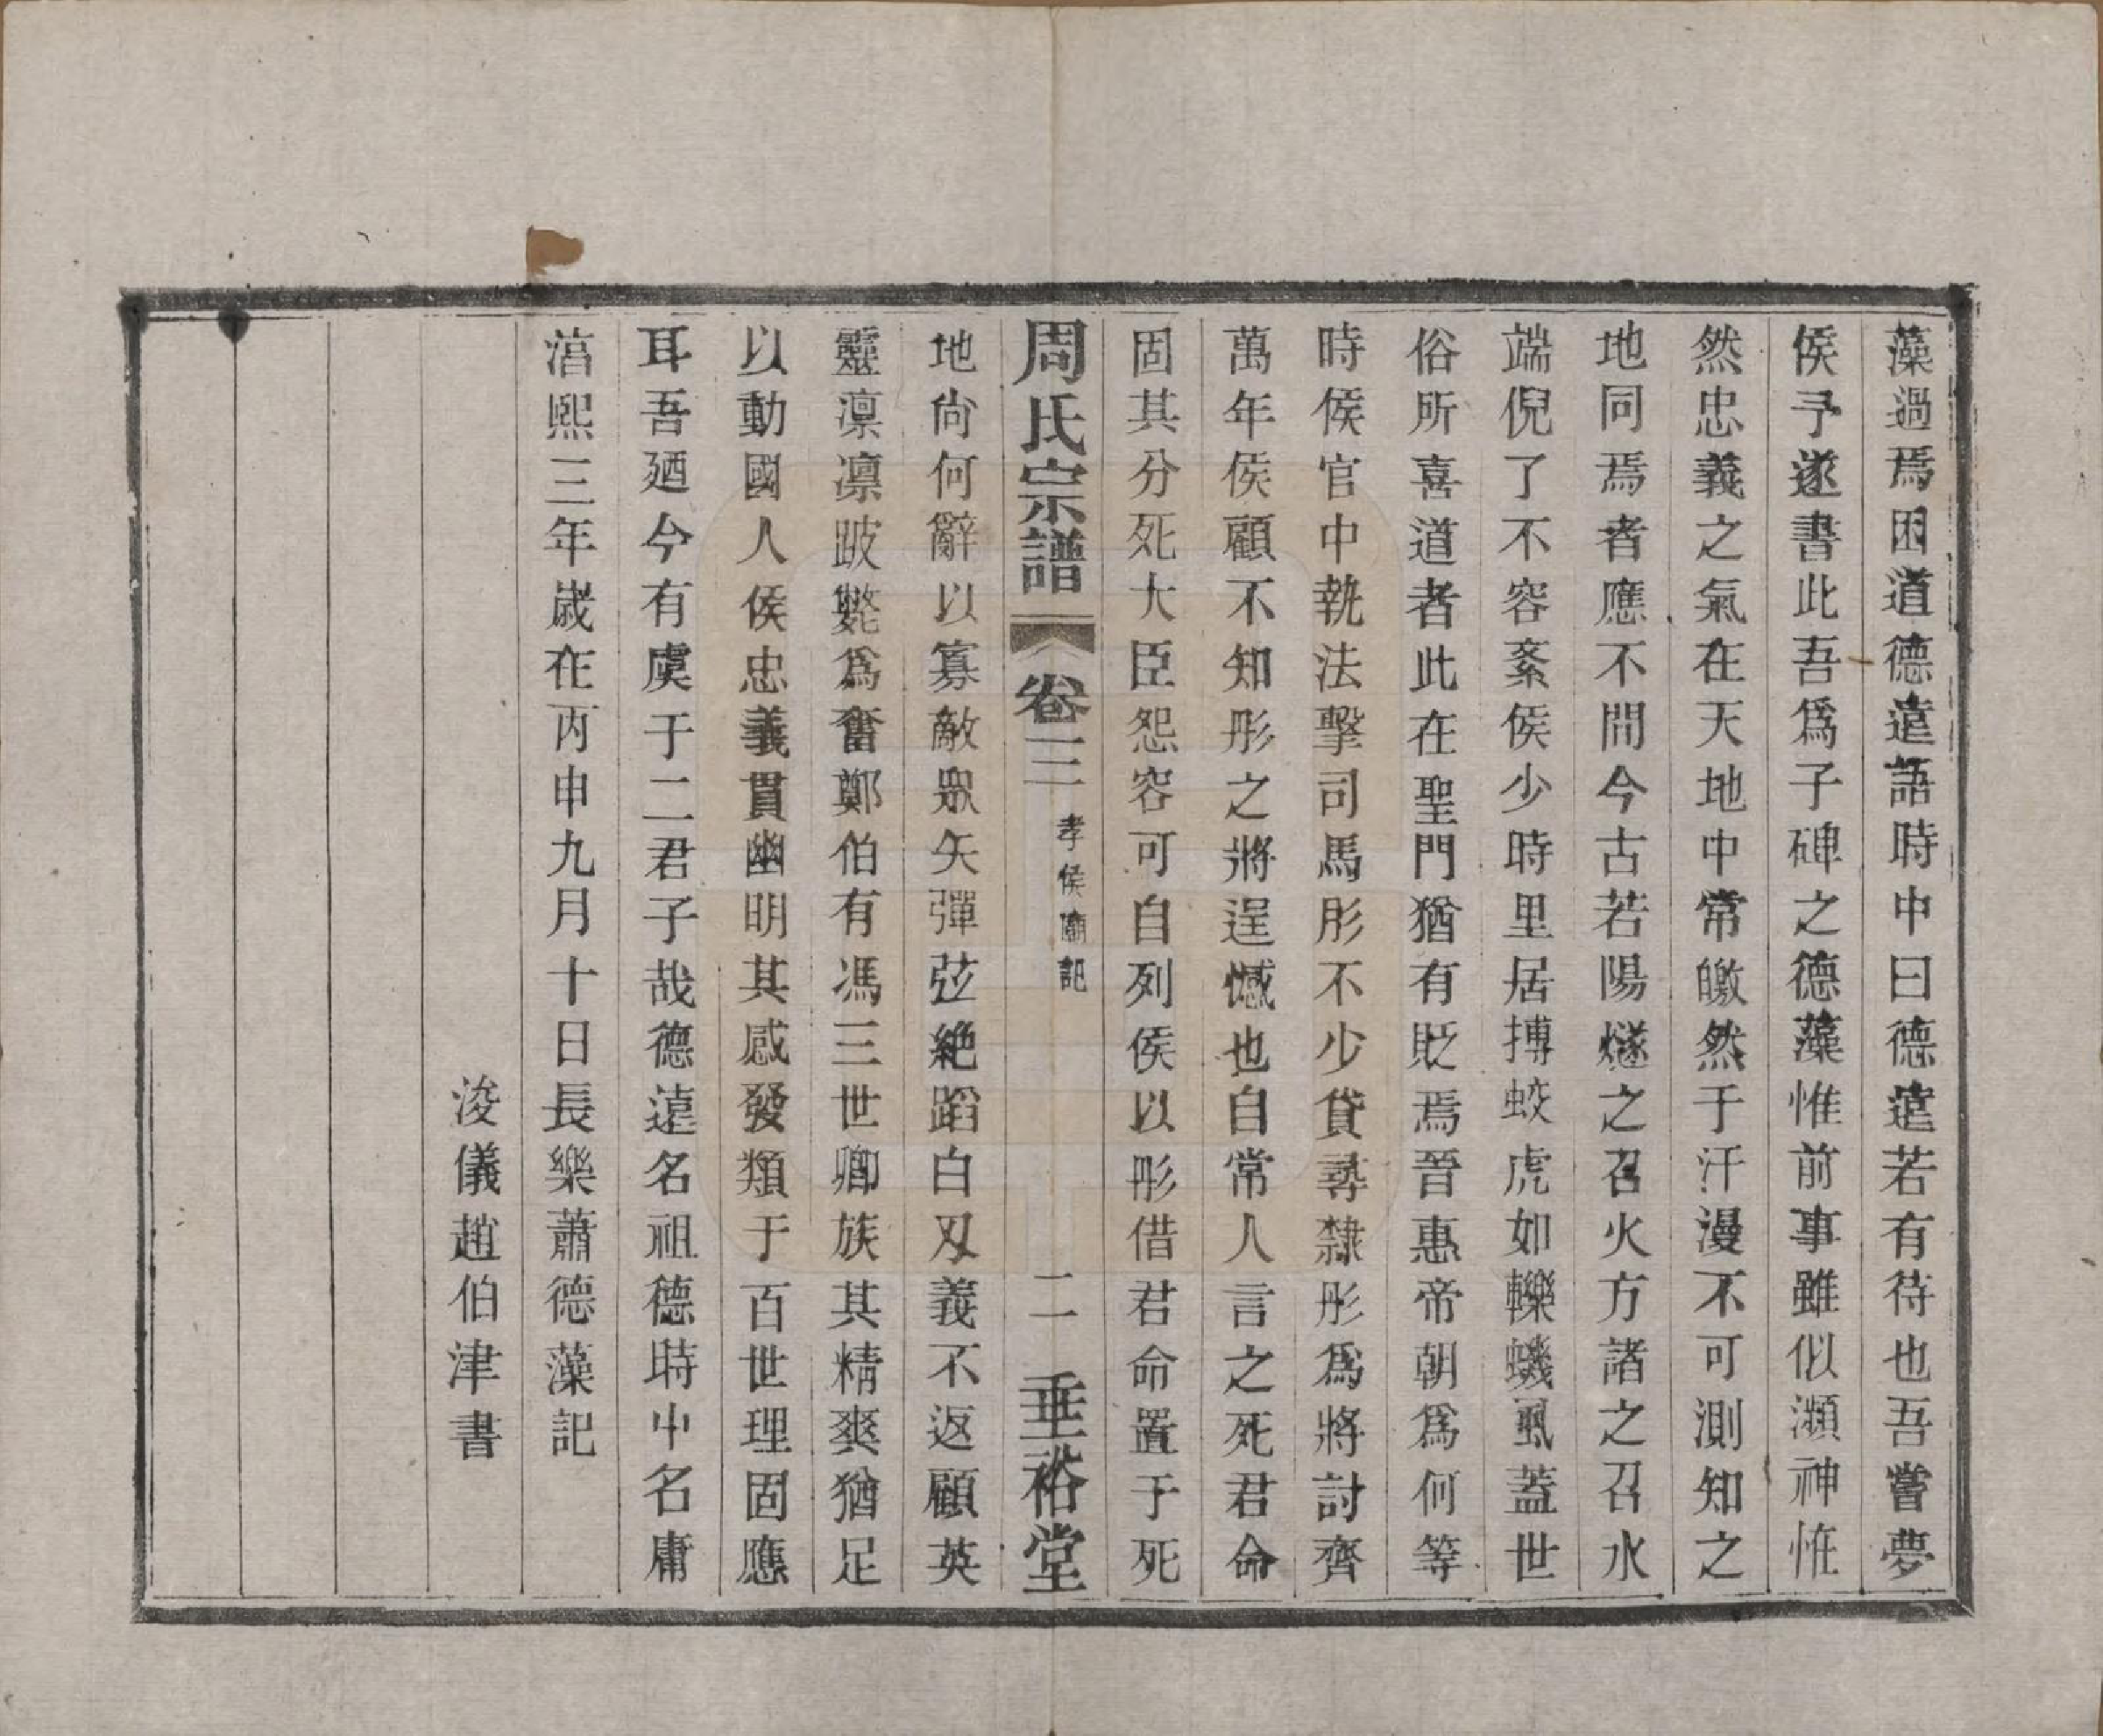 藻過焉因道德遠語時中曰德遠若有待也吾嘗夢
侯予遂書此吾爲子碑之德藻惟前事雖似瀕神恠
然忠義之氣在天地中常皦然于汗漫不可測知之
地同焉者應不間今古若陽燧之召火方諸之召水
端倪了不容紊侯少時里居搏蛟虎如轢蟣虱蓋世
俗所喜道者此在聖門猶有貶焉晉惠帝朝爲何等
時侯官中執法擊司馬肜不少貸尋隸肜爲將討齊
萬年侯顧不知肜之將逞憾也自常人言之死君命
固其分死大臣怨容可自列侯以肜借君命置于死
周氏宗譜 卷三 孝侯廟記 二 垂裕堂
地尙何辭以寡敵眾矢彈弦絶蹈白刄義不返顧英
靈凛凛跛躄爲奮鄭伯有馮三世卿族其精爽猶足
以動國人侯忠義貫幽明其感發類于百世理固應
耳吾廼今有虞于二君子哉德遠名祖德時中名庸
湻熙三年歲在丙申九月十日長樂蕭德藻記
浚儀趙伯津書